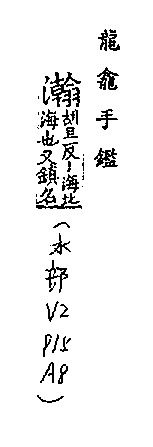 龍龕手鑑
瀚胡旦反〻海北
海也又鎮名
(水部V2
P15
A8)